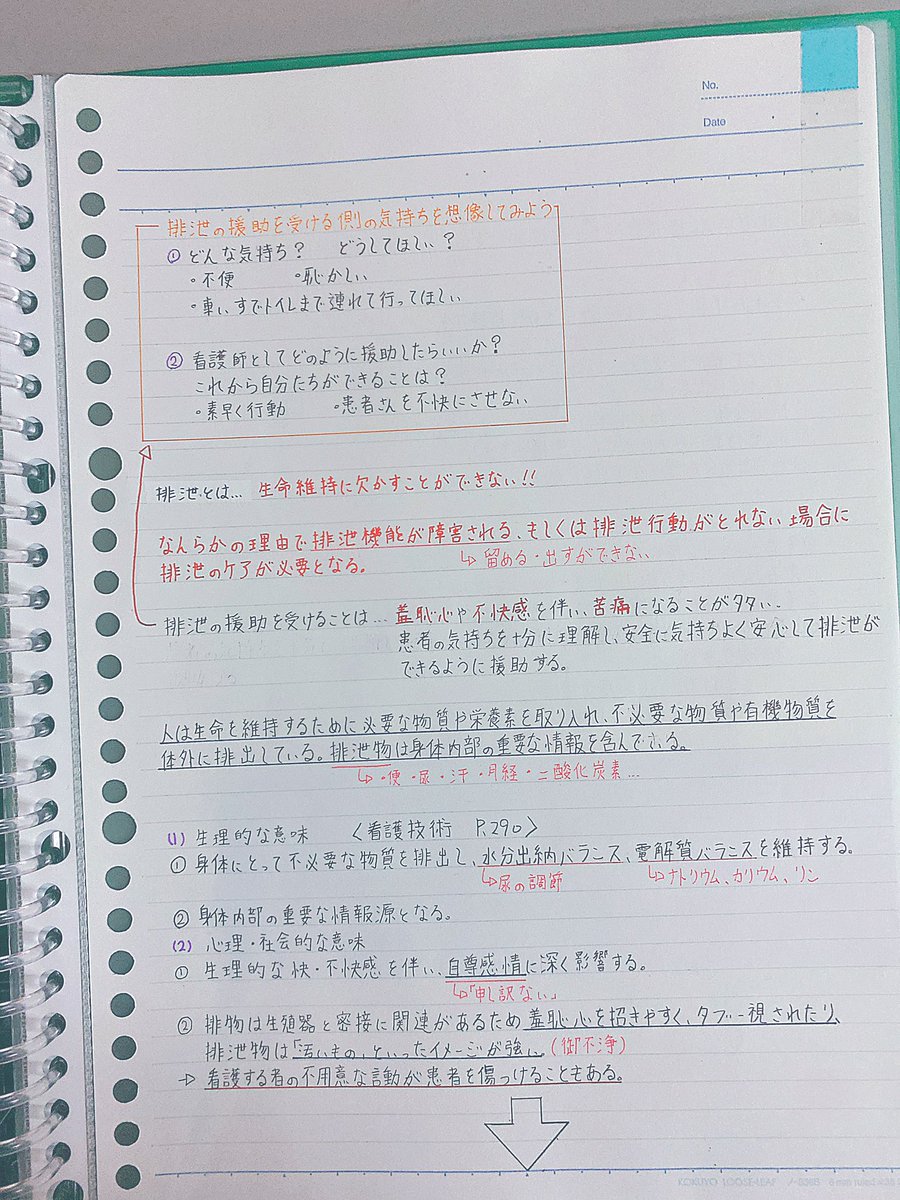 No.
Date
排泄の援助を受ける側の気持ちを想像してみよう
① どんな気持ち? どうしてほしい?
・不便 ・恥かしい
・車いすでトイレまで連れて行ってほしい
② 看護師としてどのように援助したらいいか?
これから自分たちができることは?
・素早く行動 ・患者さんを不快にさせない
排泄とは… 生命維持に欠かすことができない!!
なんらかの理由で排泄機能が障害される、もしくは排泄行動がとれない場合に
↳ 留める・出すができない
排泄のケアが必要となる。
排泄の援助を受けることは… 羞恥心や不快感を伴い、苦痛になることが多い。
患者の気持ちを十分に理解し、安全に気持ちよく安心して排泄が
できるように援助する。
人は生命を維持するために必要な物質や栄養素を取り入れ、不必要な物質や有機物質を
体外に排出している。排泄物は身体内部の重要な情報を含んでいる。
↳・便・尿・汗・月経・二酸化炭素…
(1) 生理的な意味 〈看護技術 P.290〉
① 身体にとって不必要な物質を排出し、水分出納バランス、電解質バランスを維持する。
↳尿の調節 ↳ナトリウム、カリウム、リン
② 身体内部の重要な情報源となる。
(2) 心理・社会的な意味
① 生理的な快・不快感を伴い、自尊感情に深く影響する。
↳「申し訳ない」
② 排物は生殖器と密接に関連があるため羞恥心を招きやすく、タブー視されたり、
排泄物は「汚いもの」といったイメージが強い。(御不浄)
→ 看護する者の不用意な言動が患者を傷つけることもある。
KOKUYO LOOSE-LEAF ノ-836B 6mm ruled